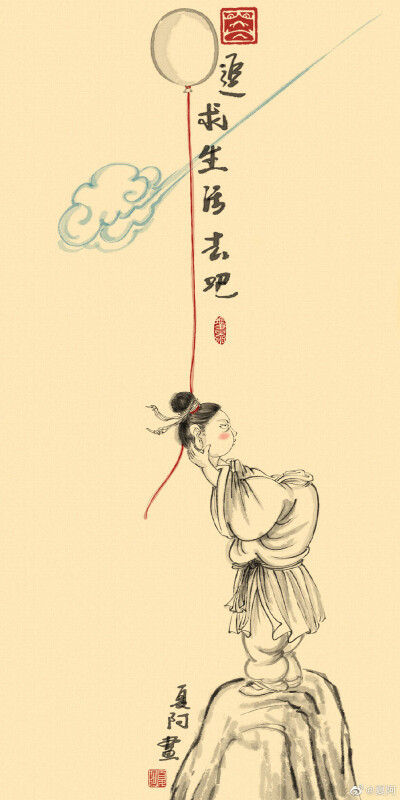 追求生活去吧
夏阿畫
@夏阿